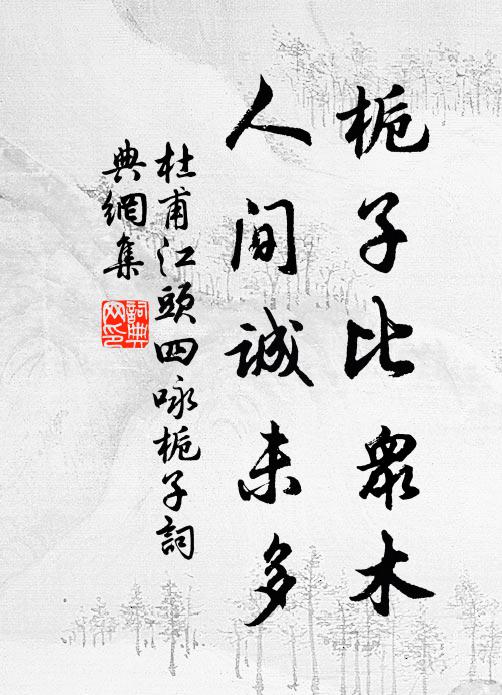 栀子比眾木
人间誠未多
杜甫江頭四咏栀子詞
典網集
詞典
网印